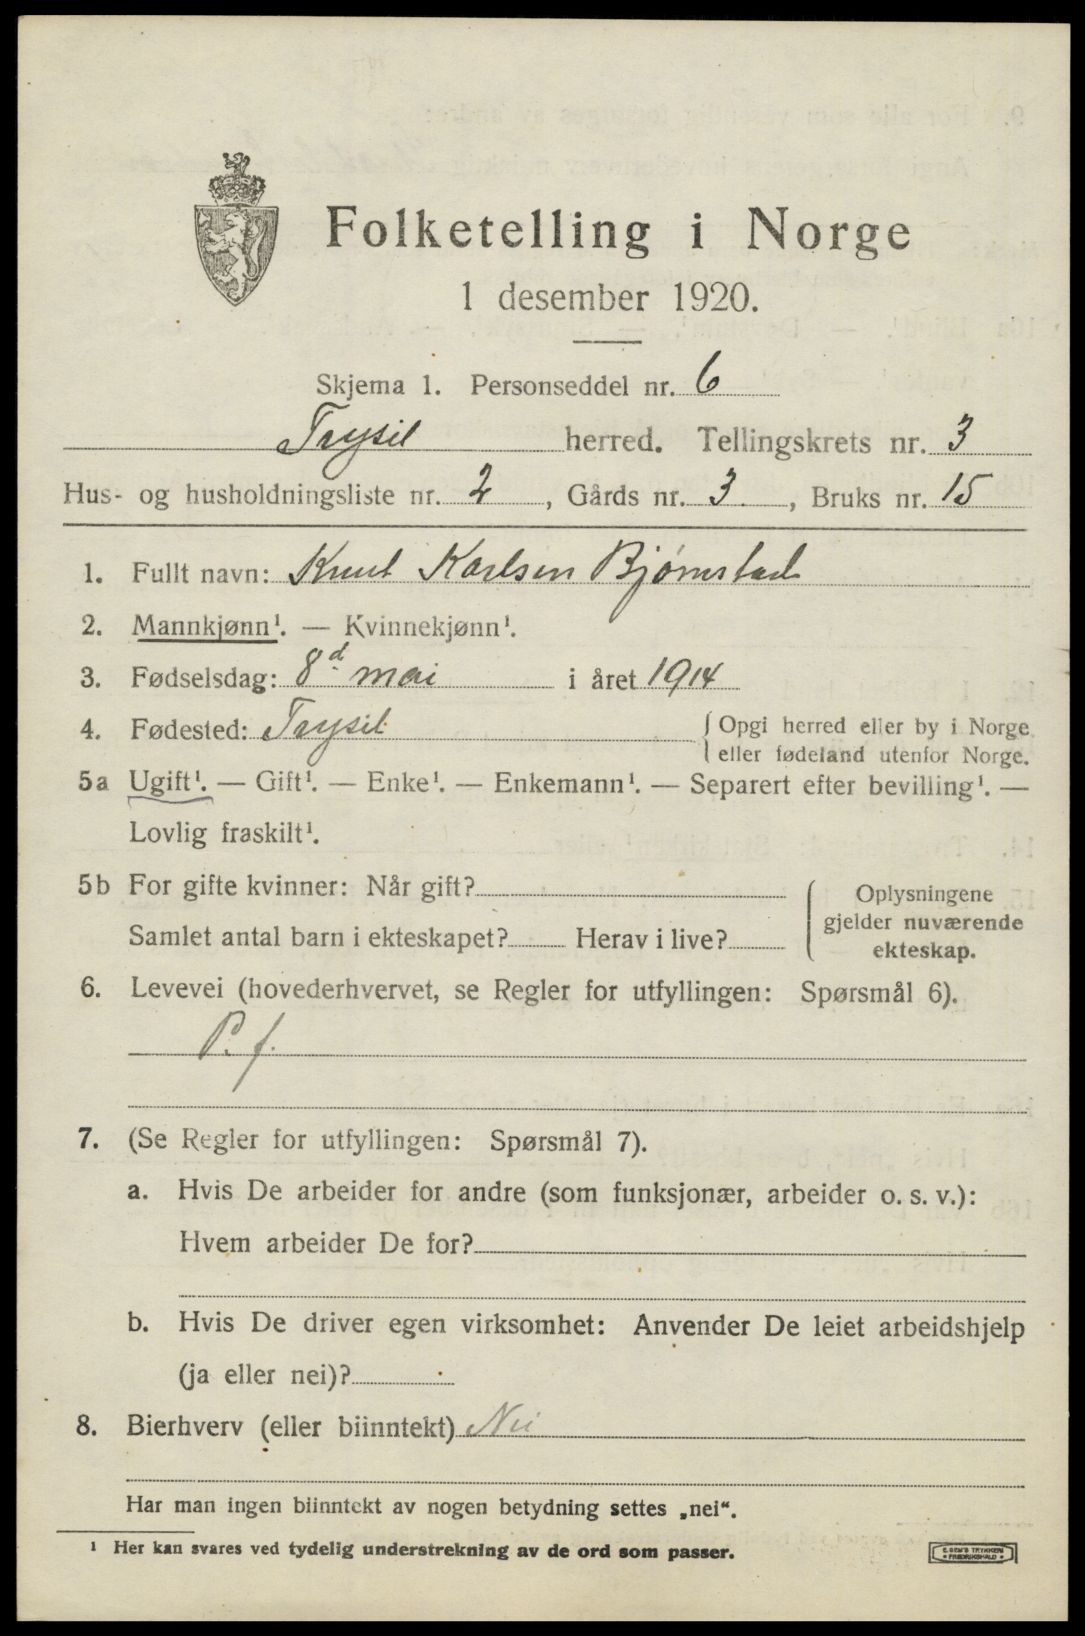 Folketelling i Norge
1 desember 1920.
Skjema 1. Personseddel nr. 6
Trysil herred. Tellingskrets nr. 3
Hus- og husholdningsliste nr. 2, Gårds nr. 3., Bruks nr. 15
1. Fullt navn: Knut Karlsen Bjørnstad
2. Mannkjønn¹. — Kvinnekjønn¹.
3. Fødselsdag: 8d mai i året 1914
4. Fødested: Trysil {Opgi herred eller by i Norge
eller fødeland utenfor Norge.
5a Ugift¹. — Gift¹. — Enke¹. — Enkemann¹. — Separert efter bevilling¹. —
Lovlig fraskilt¹.
5b For gifte kvinner: Når gift?
Samlet antal barn i ekteskapet? Herav i live?
Oplysningene
gjelder nuværende
ekteskap.
6. Levevei (hovederhvervet, se Regler for utfyllingen: Spørsmål 6).
P. f.
7. (Se Regler for utfyllingen: Spørsmål 7).
a. Hvis De arbeider for andre (som funksjonær, arbeider o. s. v.):
Hvem arbeider De for?
b. Hvis De driver egen virksomhet: Anvender De leiet arbeidshjelp
(ja eller nei)?
8. Bierhverv (eller biinntekt) Nei
Har man ingen biinntekt av nogen betydning settes „nei“.
¹ Her kan svares ved tydelig understrekning av de ord som passer.
E. SEM'S TRYKKERI
• FREDRIKSHALD •